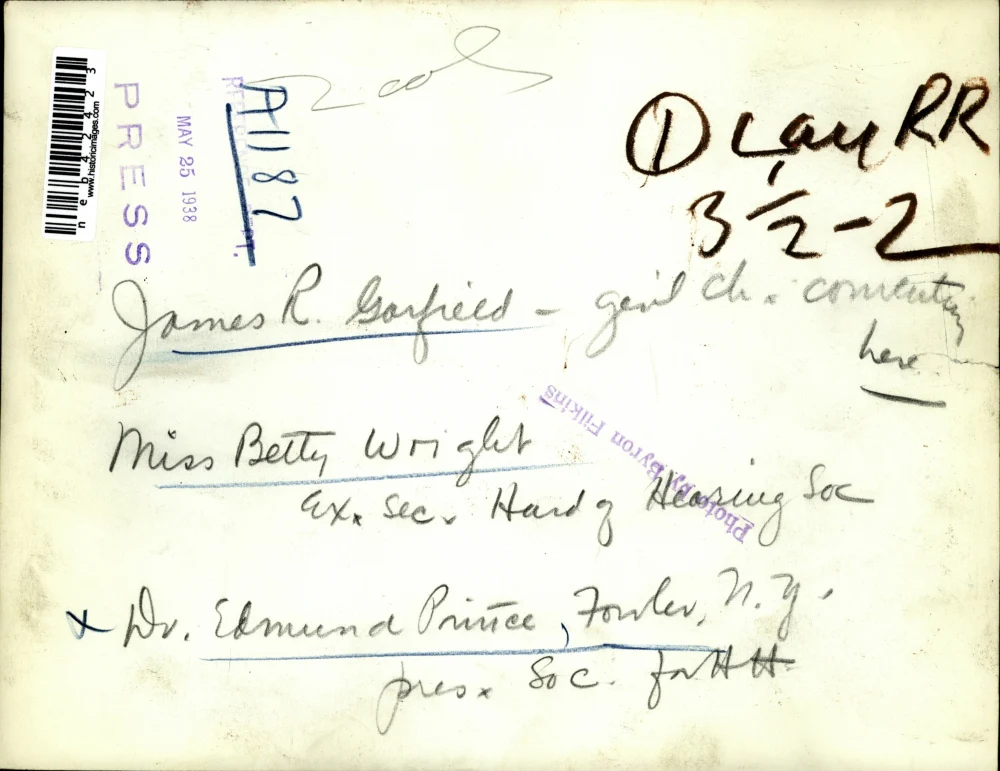 2 col
① Lay RR
3 1/2 - 2
neb42423
www.historicimages.com
PRESS
MAY 25 1938
A1187
James R. Garfield - genl ch. convention
here
Miss Betty Wright
ex. sec. Hard of Hearing Soc
Photo by Byron Filkins
x Dr. Edmund Prince, Fowler, N.Y.
pres. Soc. for HH